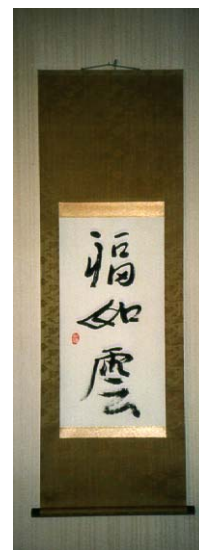 福如雲